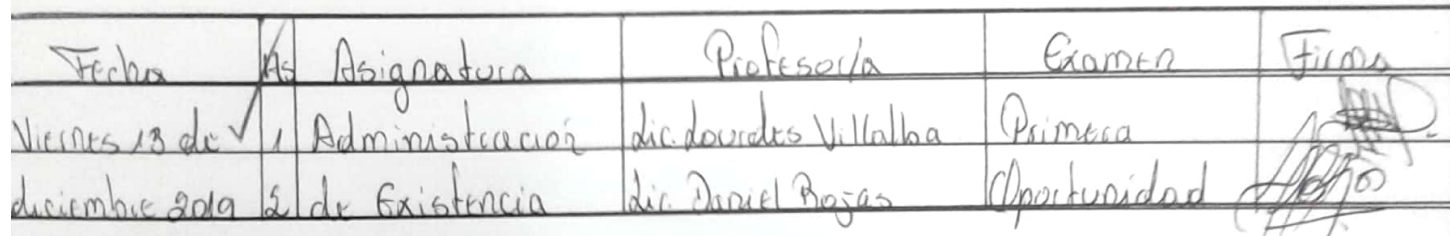 Fecha As Asignatura Profesor/a Examen Firma
Viernes 13 de 1 Administración Lic. Lourdes Villalba Primera
diciembre 2019 2 de Existencia Lic. Daniel Rojas Oportunidad